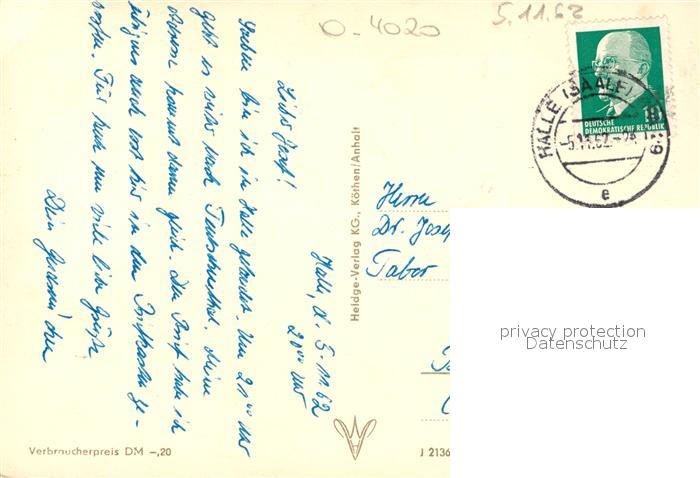 O-4020
5.11.62
HALLE (SAALE)
-5.11.62.
e
10
DEUTSCHE
DEMOKRATISCHE REPUBLIK
Halle, d. 5.11.62
20⁰⁰ Uhr
Lieber Josef!
Soeben bin ich in Halle gelandet. Um 21⁰⁰ Uhr
geht es weiter nach Teutschenthal. Meine
Adresse kommt dann gleich. Den Brief habe ich
übrigens auch erst hier in den Briefkasten ge-
worfen. Für heute nun viele liebe Grüße
Dein
Herrn
Dr. Josef
Tabor
Heldge-Verlag KG., Köthen/Anhalt
Verbraucherpreis DM –,20
J 2136
privacy protection
Datenschutz